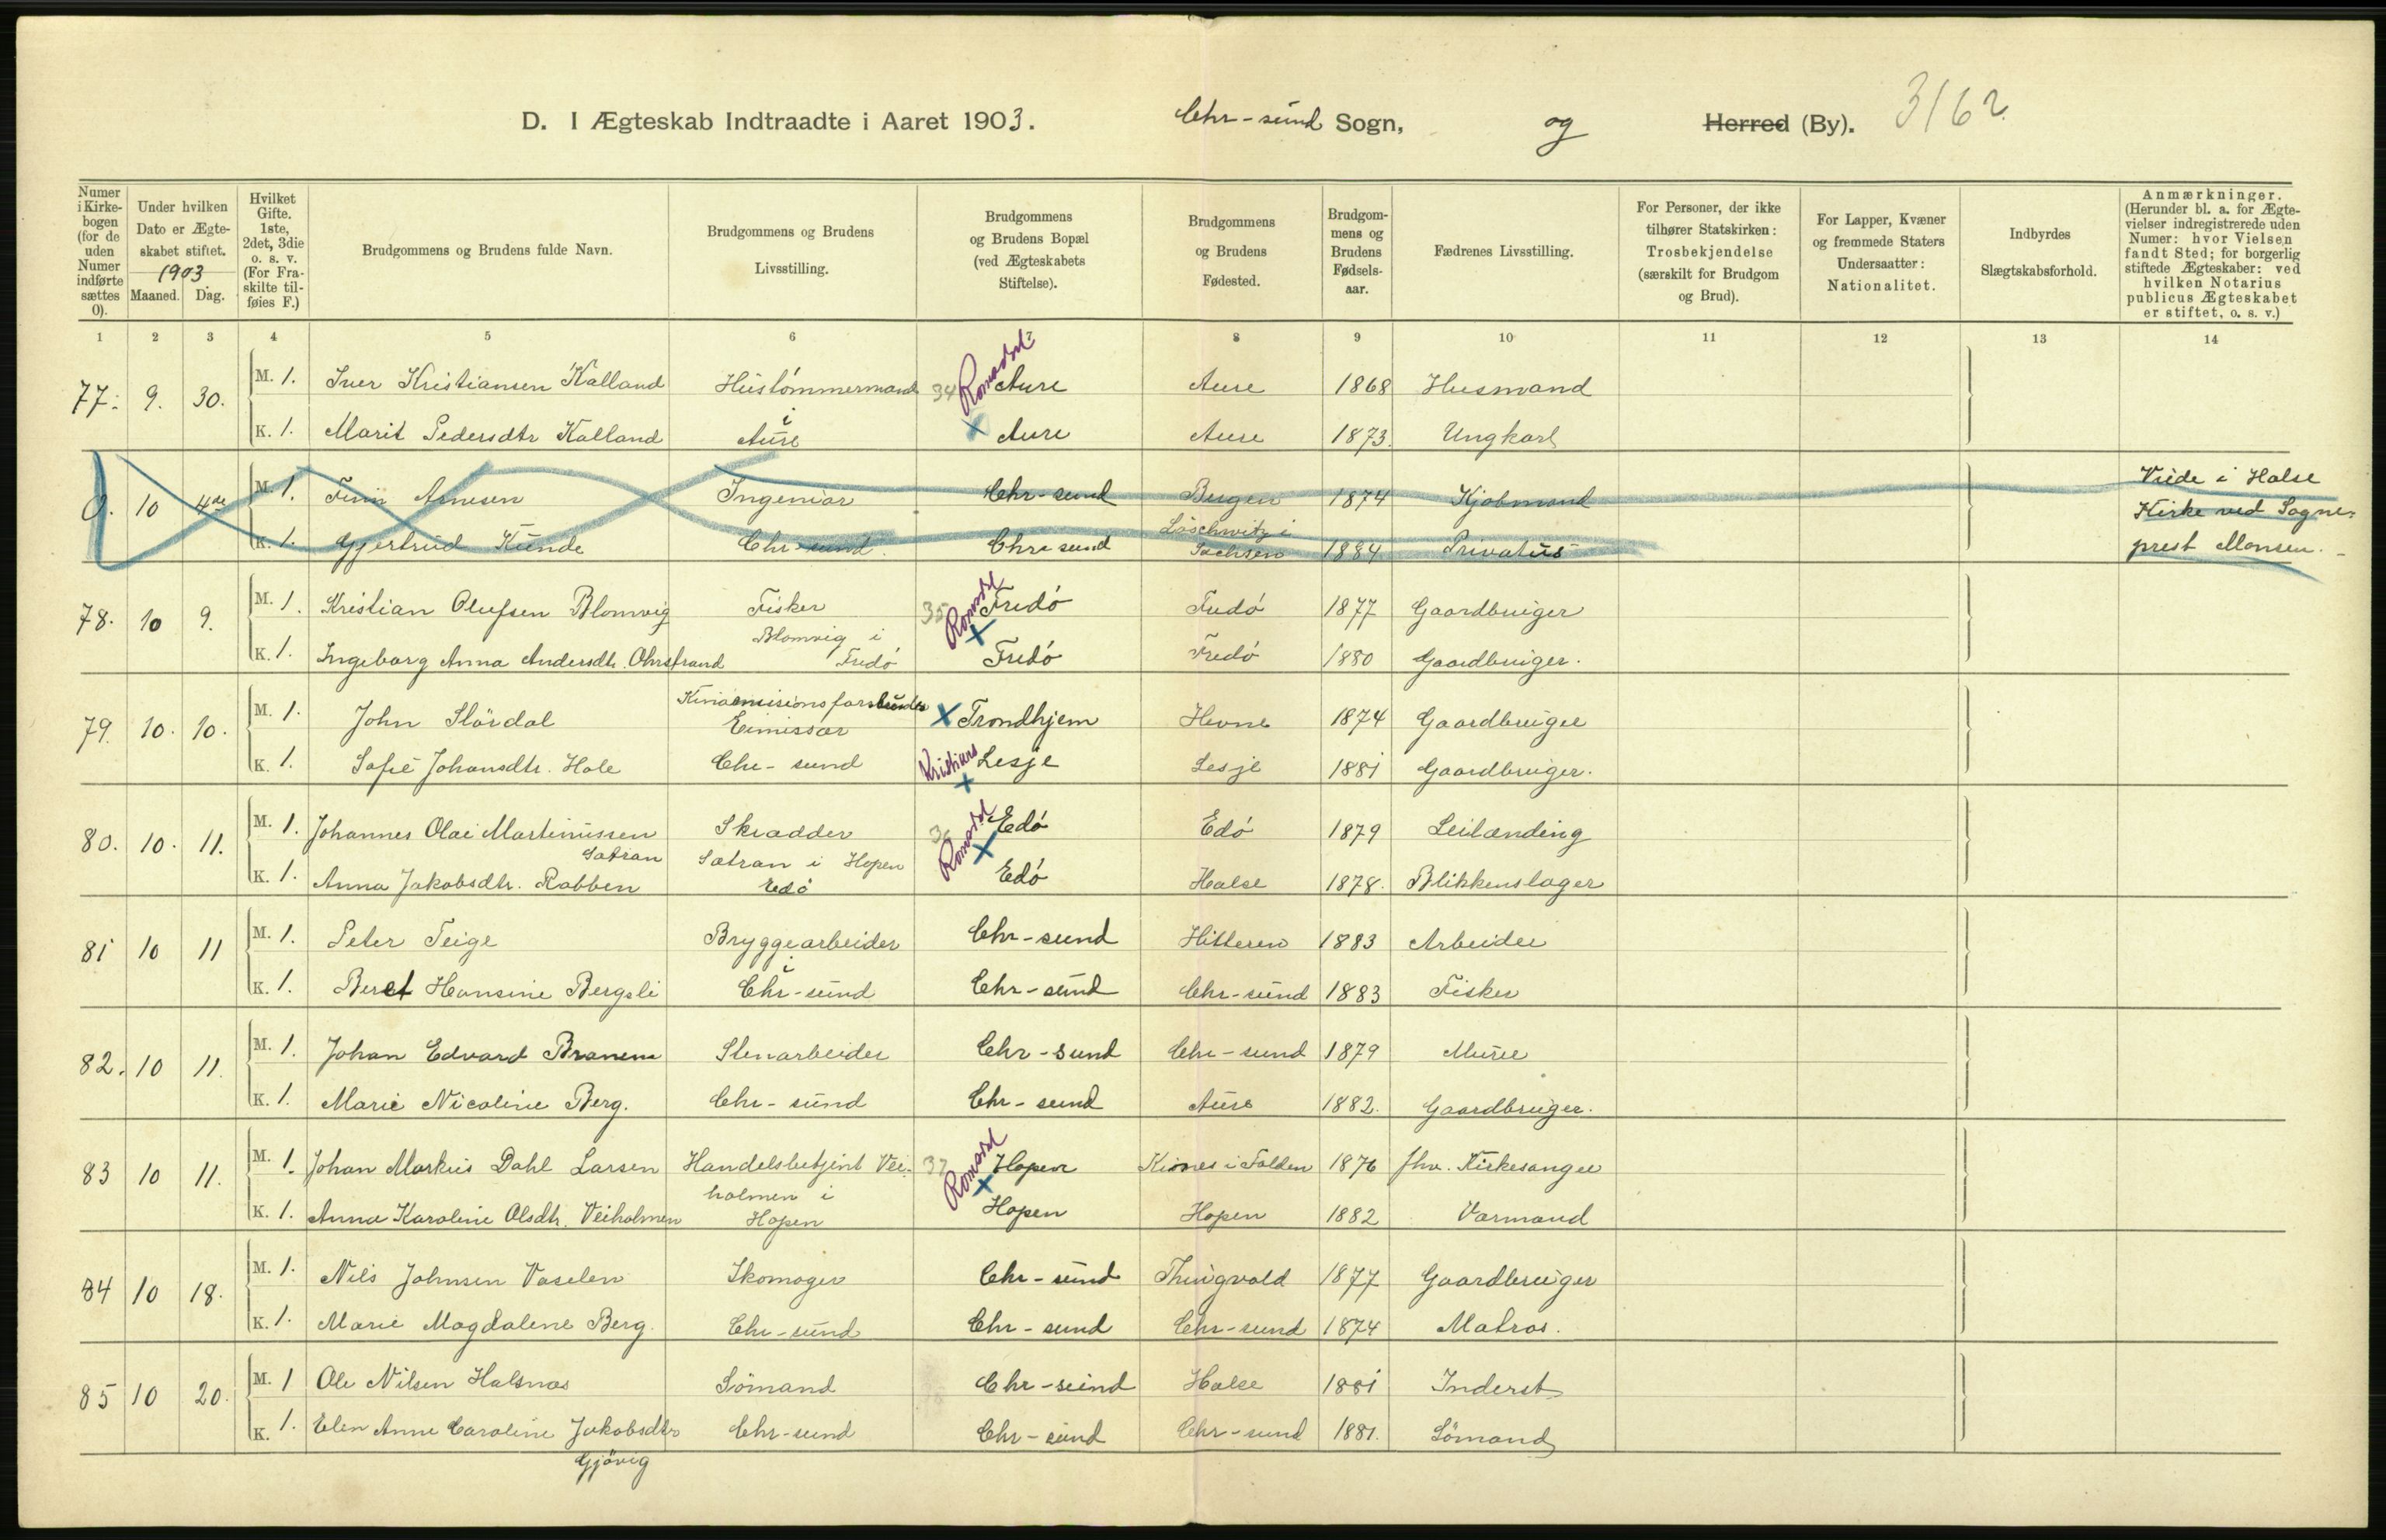 D. I Ægteskab Indtraadte i Aaret 1903. Chr-sund Sogn, og Herred (By). 3162
Numer i Kirkebogen (for de uden Numer indførte sættes 0).
Under hvilken Dato er Ægteskabet stiftet. 1903 Maaned. Dag.
Hvilket Gifte. 1ste, 2det, 3die o. s. v. (For Fraskilte tilføies F.)
Brudgommens og Brudens fulde Navn.
Brudgommens og Brudens Livsstilling.
Brudgommens og Brudens Bopæl (ved Ægteskabets Stiftelse).
Brudgommens og Brudens Fødested.
Brudgommens og Brudens Fødselsaar.
Fædrenes Livsstilling.
For Personer, der ikke tilhører Statskirken: Trosbekjendelse (særskilt for Brudgom og Brud).
For Lapper, Kvæner og fremmede Staters Undersaatter: Nationalitet.
Indbyrdes Slægtskabsforhold.
Anmærkninger. (Herunder bl. a. for Ægtevielser indregistrerede uden Numer: hvor Vielsen fandt Sted; for borgerlig stiftede Ægteskaber: ved hvilken Notarius publicus Ægteskabet er stiftet, o. s. v.)
1 2 3 4 5 6 7 8 9 10 11 12 13 14
77. 9. 30. M. 1. Iver Kristiansen Kalland Hustømmermand 34 Romsdal Aure Aure 1868 Husmand
K. 1. Marit Pedersdtr Kalland i Aure Aure Aure 1873. Ungkarl
0. 10 4de M. 1. Finn Arnesen Ingeniør Chr-sund Bergen 1874 Kjøbmand Viede i Halse
K. 1. Gjertrud Kunde Chr-sund Chr-sund Löschwitz i Sachsen 1884 Privatus Kirke ved Sogneprest Monsen.
78. 10 9. M. 1. Kristian Olufsen Blomvig Fisker 35 Romsdal Fredø Fredø 1877 Gaardbruger
K. 1. Ingeborg Anna Andersdtr. Ohrstrand Blomvig i Fredø Fredø Fredø 1880 Gaardbruger.
79. 10. 10. M. 1. John Slørdal Kinamisionsforbundets Emissær Trondhjem Hevne 1874 Gaardbruger
K. 1. Sofie Johansdtr. Hole Chr-sund Kristians Lesje Lesje 1881 Gaardbruger.
80. 10. 11. M. 1. Johannes Olai Martinussen Sætran Skrædder 36 Romsdal Edø Edø 1879 Leilænding
K. 1. Anna Jakobsdtr. Rabben Sætran i Hopen Edø Edø Halse 1878. Blikkenslager
81 10 11 M. 1. Peter Teige Bryggearbeider Chr-sund Hitteren 1883 Arbeider
K. 1. Beret Hansine Bergsli i Chr-sund Chr-sund Chr-sund 1883 Fisker
82. 10 11. M. 1. Johan Edvard Stenarbeider Chr-sund Chr-sund 1879 Murer
K. 1. Marie Nicoline Berg. Chr-sund Chr-sund Aure 1882. Gaardbruger.
83 10 11. M. 1. Johan Markus Dahl Larsen Handelsbetjent Vei- 37 Romsdal Hopen i Folden 1876 fhv. Kirkesanger
K. 1. Anna Karoline Olsdtr. Veiholmen holmen i Hopen Hopen Hopen 1882 Varmand
84 10 18. M. 1. Nils Johnsen Vaselen Skomager Chr-sund Thingvold 1877 Gaardbruger
K. 1. Marie Magdalene Berg. Chr-sund Chr-sund Chr-sund 1874 Matros.
85 10 20. M. 1 Ole Nilsen Halsnæs Sømand Chr-sund Halse 1881 Inderst
K. 1. Elen Anne Caroline Jakobsdtr Gjøvig Chr-sund Chr-sund Chr-sund 1881. Sømand